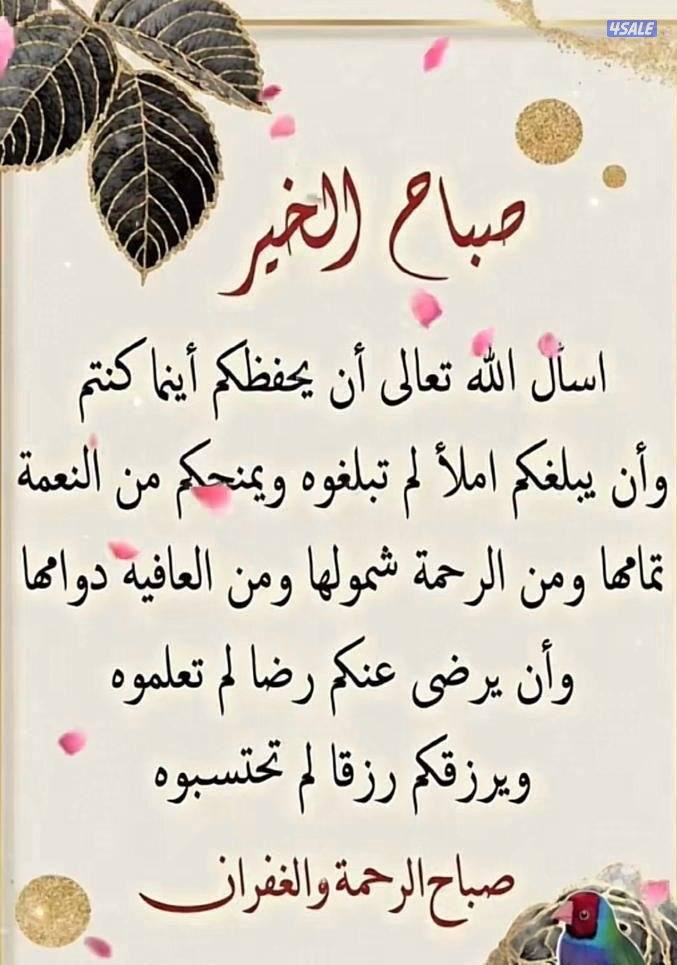 4SALE
صباح الخير
اسأل الله تعالى أن يحفظكم أينما كنتم
وأن يبلغكم املأ لم تبلغوه ويمنحكم من النعمة
تمامها ومن الرحمة شمولها ومن العافيه دوامها
وأن يرضى عنكم رضا لم تعلموه
ويرزقكم رزقا لم تحتسبوه
صباح الرحمة والغفران